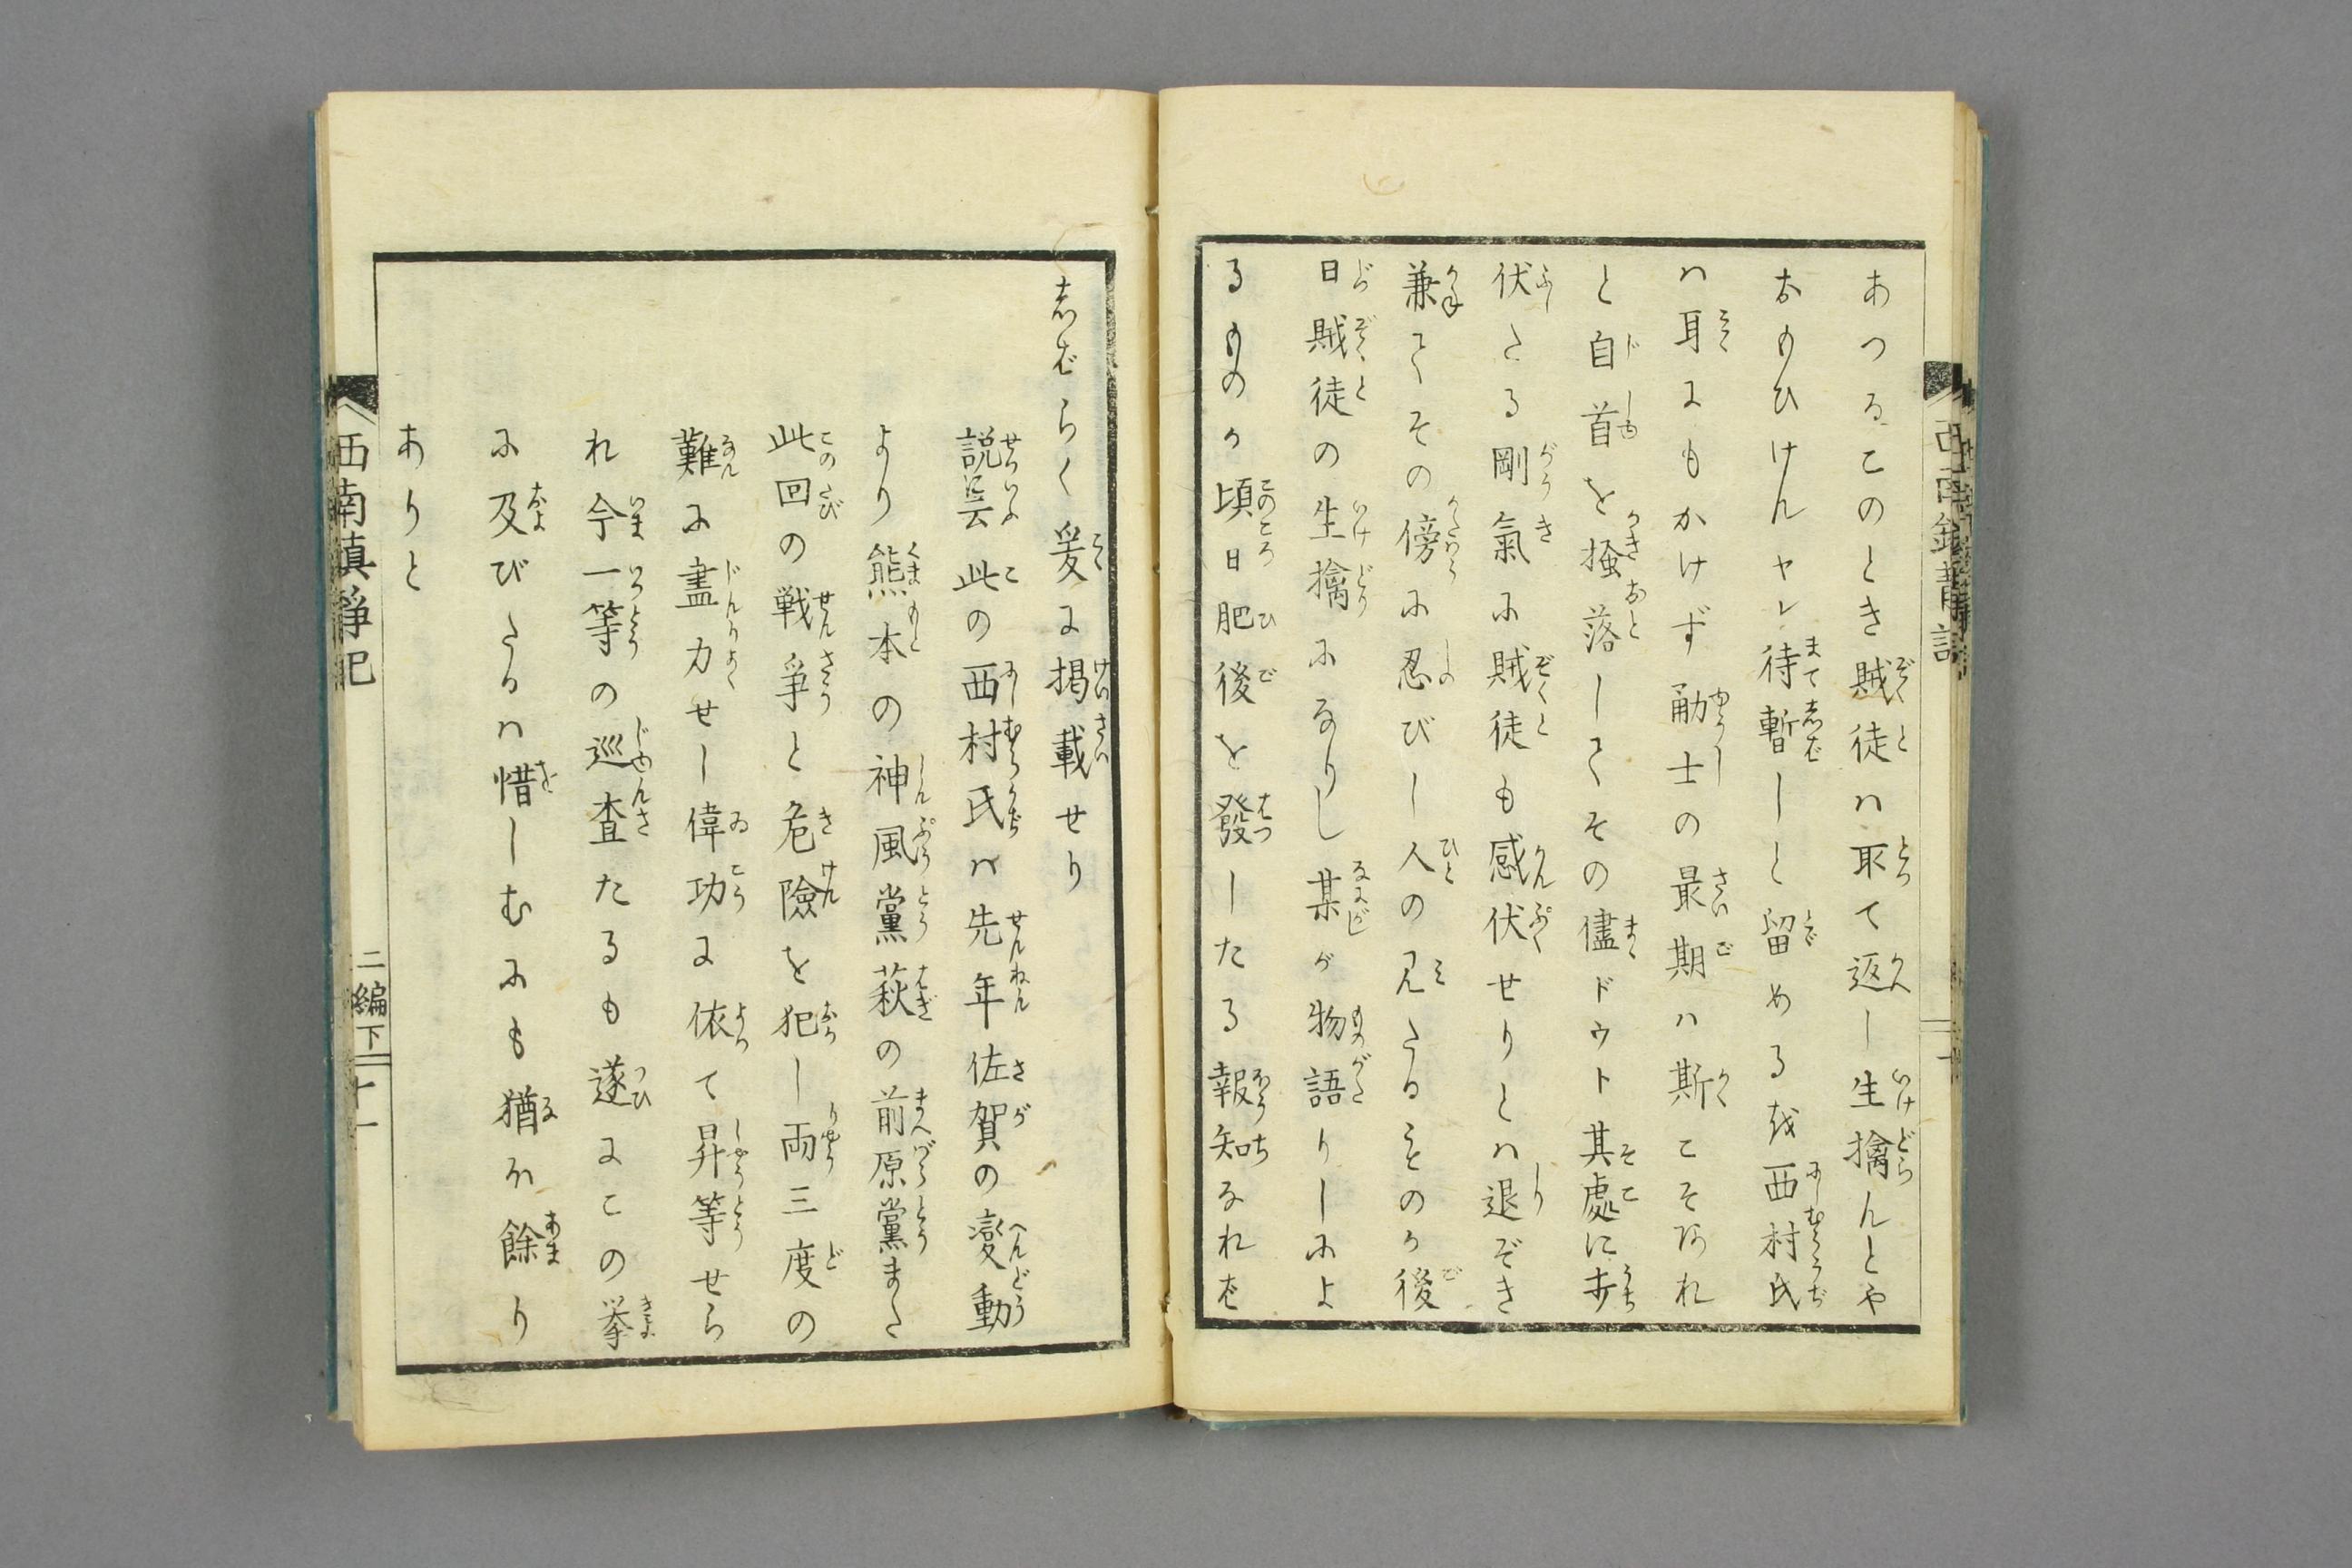 あつるこのとき賊徒ハ取て返し生擒んとや
おもひけんヤレ待暫しと留めるを西村氏
ハ耳にもかけず勇士の最期ハ斯こそあれ
と自首を掻落してその儘ドウト其處に赱
伏たる剛氣に賊徒も感伏せりとハ退ぞき
兼てその傍に忍びし人の見たるその後
日賊徒の生擒になりし某が物語りしによ
るものか頃日肥後を發したる報知なれば
志ばらく爰に掲載せり
説に云此の西村氏ハ先年佐賀の變動
より熊本の神風黨萩の前原黨また
此回の戦爭と危險を犯し両三度の
難に盡力せし偉功に依て昇等せら
れ今一等の巡査たるも遂にこの挙
に及びたるハ惜しむにも猶ほ餘り
ありと
西南眞爭記
二編下
十一